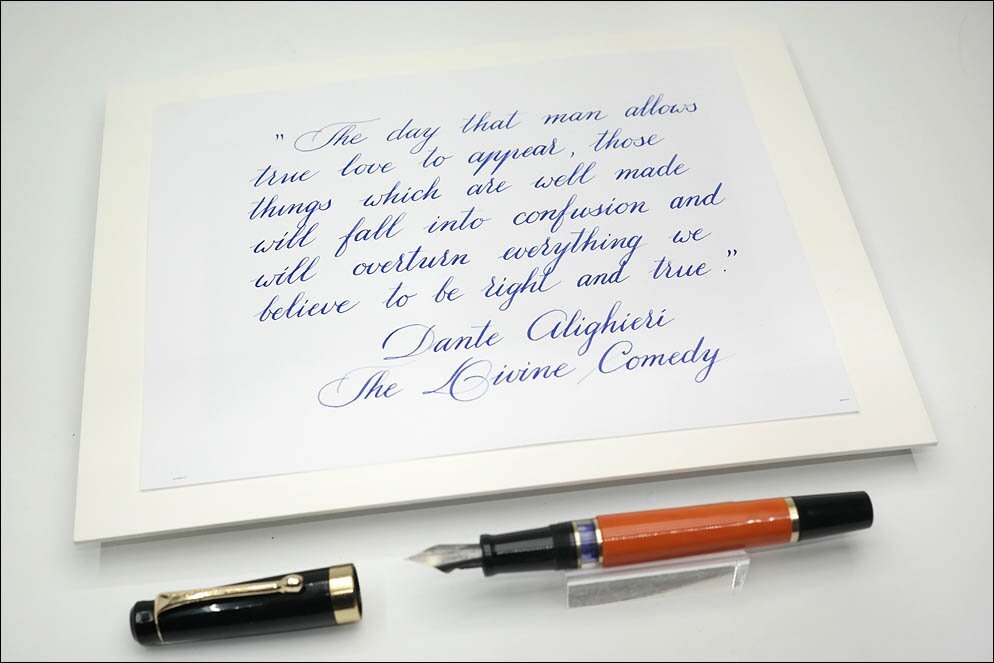 " The day that man allows
true love to appear, those
things which are well made
will fall into confusion and
will overturn everything we
believe to be right and true."
Dante Alighieri
The Divine Comedy